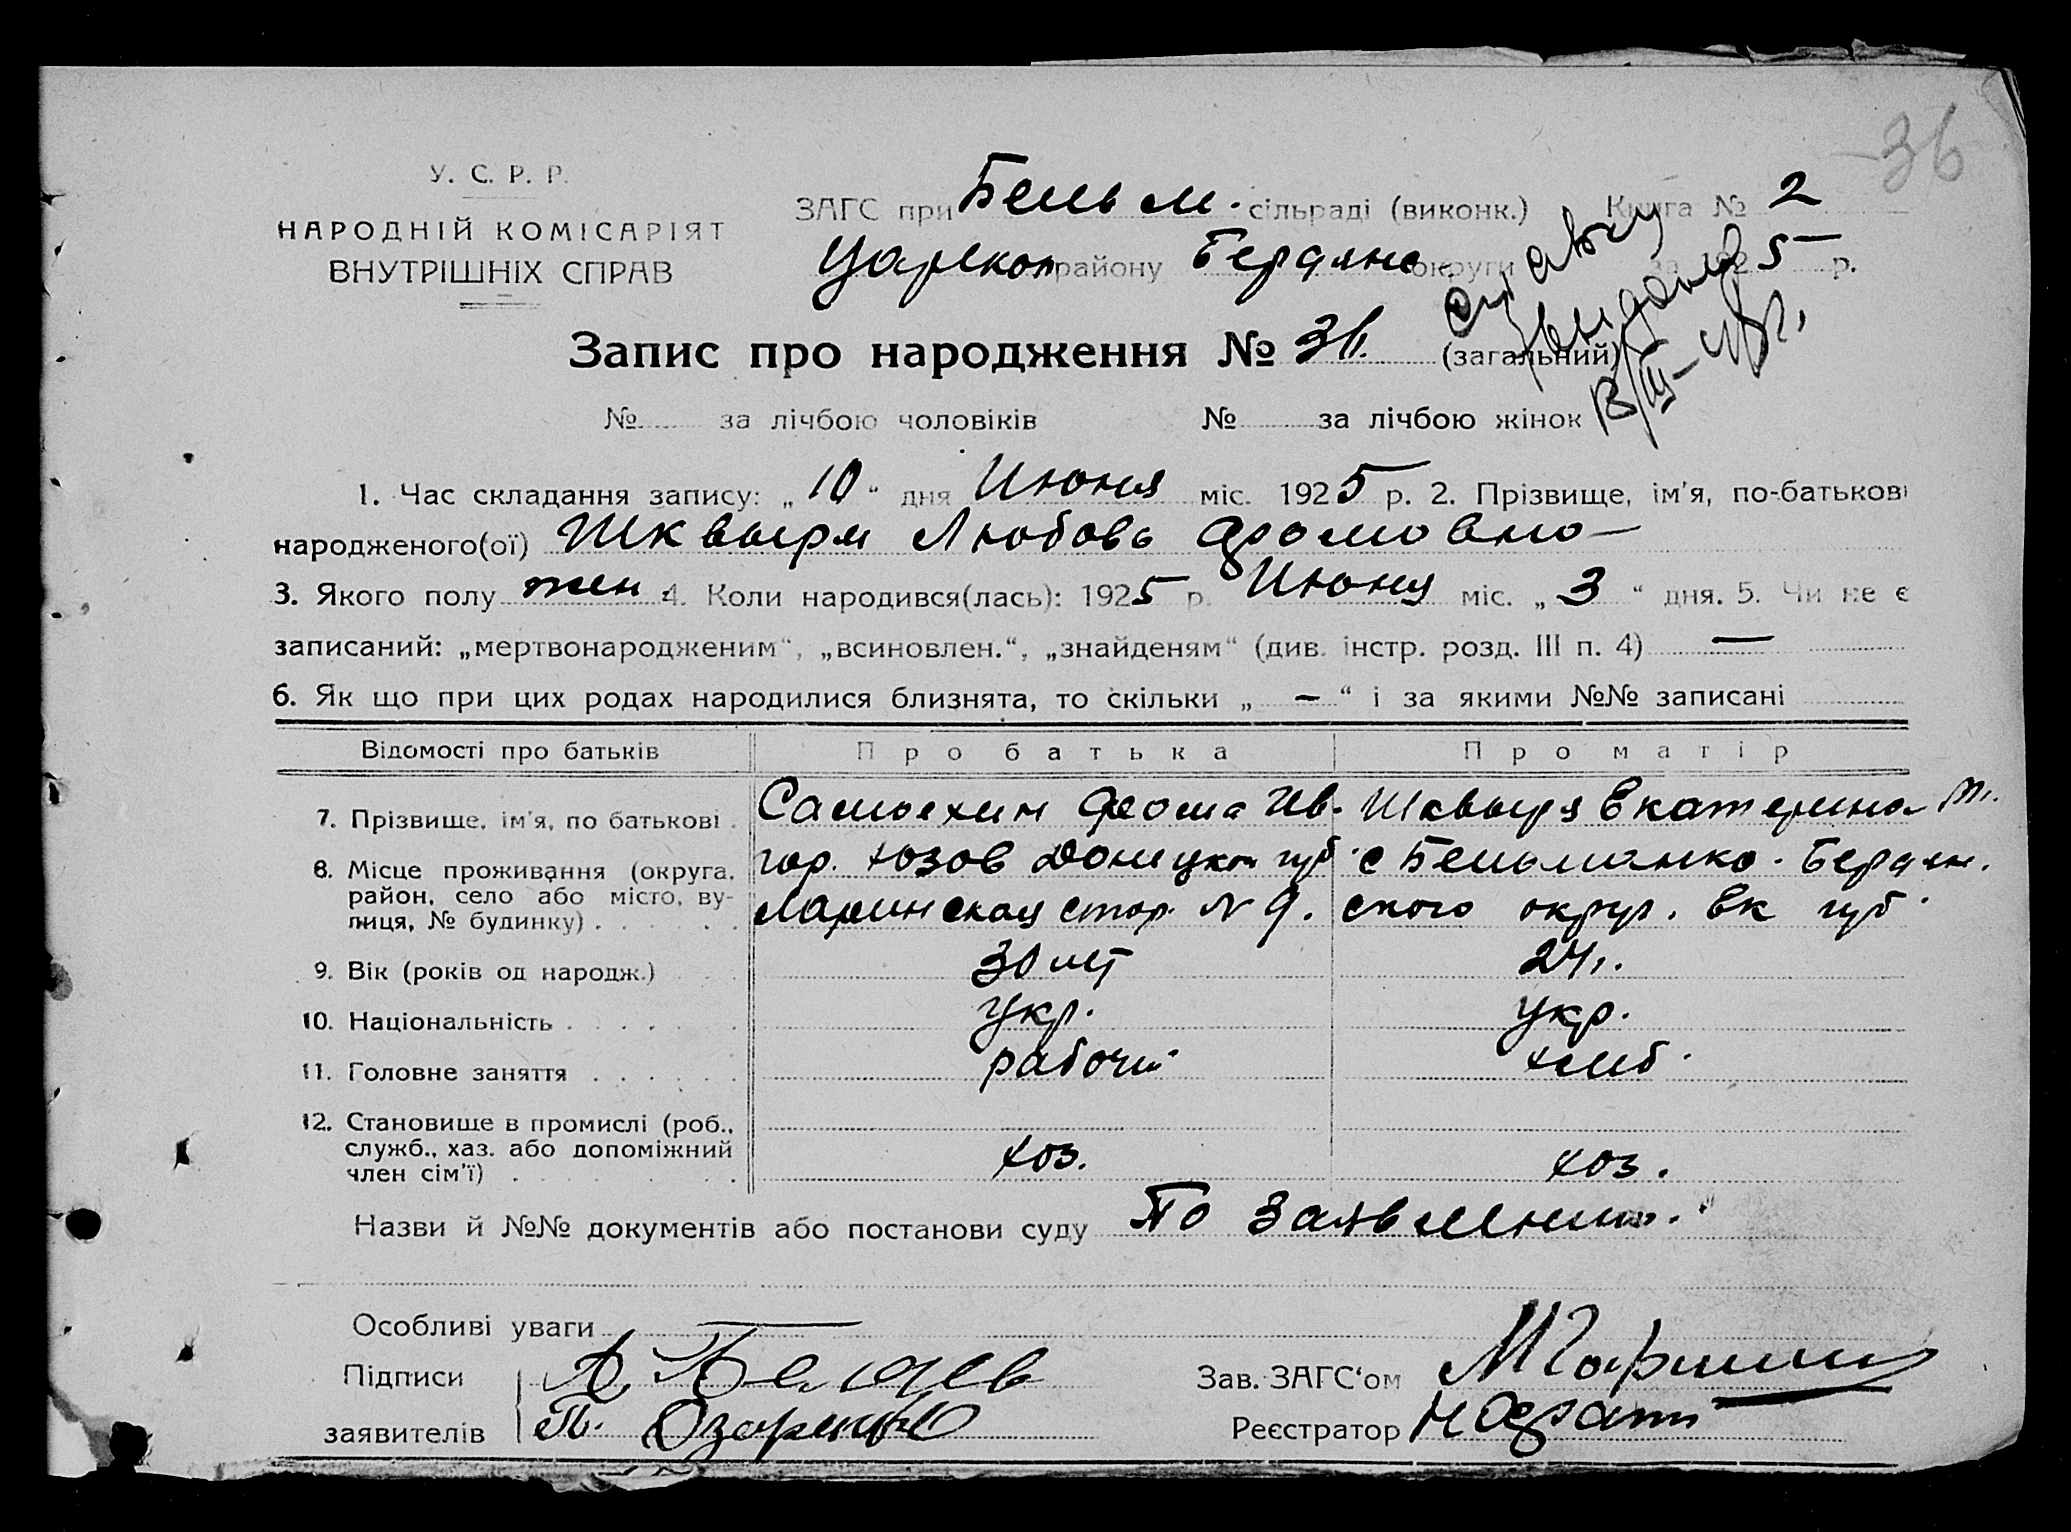 36
У. С. Р. Р.
НАРОДНІЙ КОМІСАРІЯТ
ВНУТРІШНІХ СПРАВ
ЗАГС при Бельм. сільраді (виконк.) Книга № 2
Царекон району Бердянс. округи за 1925 р.
Запис про народження № 36. (загальний)
№ за лічбою чоловіків № за лічбою жінок
1. Час складання запису: „10“ дня Июня міс. 1925 р. 2. Прізвище, ім'я, по-батькові
народженого(ої) Шквыря Любовь Фомовно
3. Якого полу жен. 4. Коли народився(лась): 1925 р. Июня міс. „3“ дня. 5. Чи не є
записаний: „мертвонародженим“, „всиновлен.“, „знайденям“ (див. інстр. розд. III п. 4) —
6. Як що при цих родах народилися близнята, то скільки „ — “ і за якими №№ записані
Відомості про батьків Про батька Про матір
7. Прізвище, ім'я, по батькові . Самохин Фома Ив. Шквыря Екатерина
8. Місце проживання (округа, район, село або місто, вулиця, № будинку) . гор. Юзов Донецкой губ. с Бельманко. Бердян.
Ларинская стор. № 9. ского округ. Ек губ.
9. Вік (років од народж.) 30 лет 24 г.
10. Національність . укр. укр.
11. Головне заняття . рабочий хлеб.
12. Становище в промислі (роб., служб., хаз. або допоміжний член сім'ї) . хоз. хоз.
Назви й №№ документів або постанови суду По заявлению.
Особливі уваги —
Підписи
заявителів
Зав. ЗАГС'ом
Реєстратор